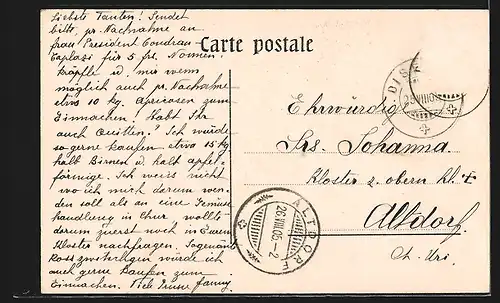 Liebste Tanten! Sendet
bitte pr. Nachnahme an
frau President Condrau-
Caplazi für 5 frs. Nonnen-
kräpfle u. mir wenn
möglich auch pr. Nachnahme
etwa 10 kg. Apricosen zum
Einmachen! Habt Ihr
auch Quitten? Ich würde
so gerne kaufen etwa 15 kg
halb Birnen u. halb apfel-
förmige. Ich weis nicht
wo ich mich darum wen-
den soll als an eine Gemüse
handlung in Chur, wollte
darum zuerst noch in Eurem
Kloster nachfragen. Sogenannt
Ross würde ich
auch gerne kaufen zum
Einmachen. Viele Grüsse fanny.
Carte postale
DIS
VIII 05
Ehrwürdige
Srs. Johanna
Kloster z. obern hl. +
Altdorf.
Ct. Uri.
ALTDORF
26.VIII.05.-2